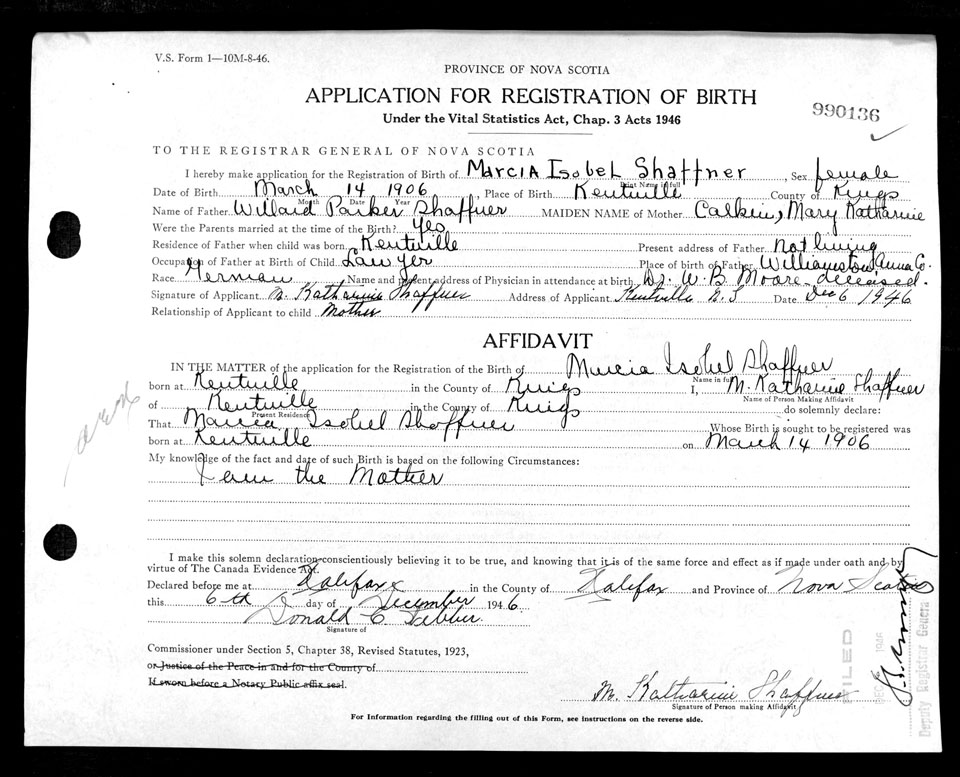 V.S. Form 1—10M-8-46.
PROVINCE OF NOVA SCOTIA
APPLICATION FOR REGISTRATION OF BIRTH
990136
Under the Vital Statistics Act, Chap. 3 Acts 1946
TO THE REGISTRAR GENERAL OF NOVA SCOTIA
I hereby make application for the Registration of Birth of Marcia Isobel Shaffner, Sex female
Print Name in full
Date of Birth March 14 1906, Place of Birth Kentville County of Kings
Month Date Year
Name of Father Willard Parker Shaffner MAIDEN NAME of Mother Calkin, Mary Katharine
Were the Parents married at the time of the Birth? yes
Residence of Father when child was born Kentville Present address of Father Not living
Occupation of Father at Birth of Child Lawyer Place of birth of Father Williamston, Anna Co.
Race German Name and present address of Physician in attendance at birth Dr. W. B. Moore - deceased.
Signature of Applicant M. Katharine Shaffner Address of Applicant Kentville N.S Date Dec 6 1946
Relationship of Applicant to child Mother
AFFIDAVIT
IN THE MATTER of the application for the Registration of the Birth of Marcia Isobel Shaffner
Name in full
born at Kentville in the County of Kings I, M. Katharine Shaffner
Name of Person Making Affidavit
of Kentville in the County of Kings do solemnly declare:
Present Residence
That Marcia Isobel Shaffner Whose Birth is sought to be registered was
born at Kentville on March 14 1906
My knowledge of the fact and date of such Birth is based on the following Circumstances:
I am the Mother
I make this solemn declaration conscientiously believing it to be true, and knowing that it is of the same force and effect as if made under oath and by
virtue of The Canada Evidence Act.
Declared before me at Halifax in the County of Halifax and Province of Nova Scotia
this 6th day of December 1946
Donald C.
Signature of
Commissioner under Section 5, Chapter 38, Revised Statutes, 1923,
or Justice of the Peace in and for the County of
If sworn before a Notary Public affix seal.
M. Katharine Shaffner
Signature of Person making Affidavit
For Information regarding the filling out of this Form, see instructions on the reverse side.
FILED
DEC 6 1946
Deputy Registrar General